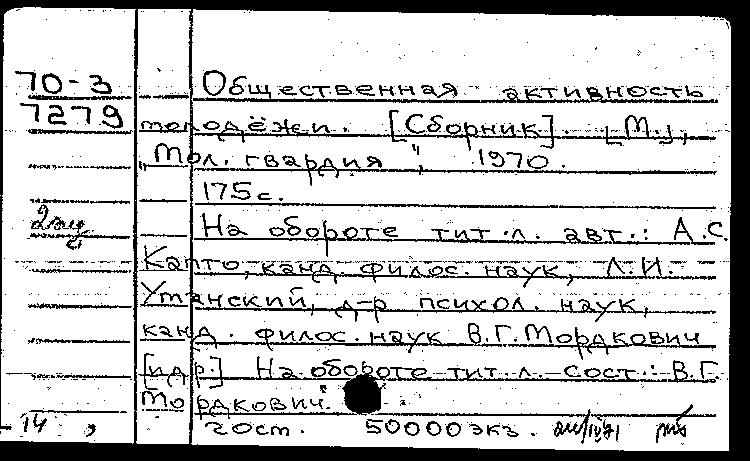 70-3 Общественная активность
7279 молодёжи. [Сборник]. [М.],
„Мол. гвардия", 1970.
175 с.
2 экз На обороте тит. л. авт.: А.С.
Капто, канд. филос. наук, Л.И.
Уманский, д-р психол. наук,
канд. филос. наук В.Г. Мордкович
[и др.] На обороте тит. л. сост.: В.Г.
Мордкович.
14 2 ост. 50000 экз.